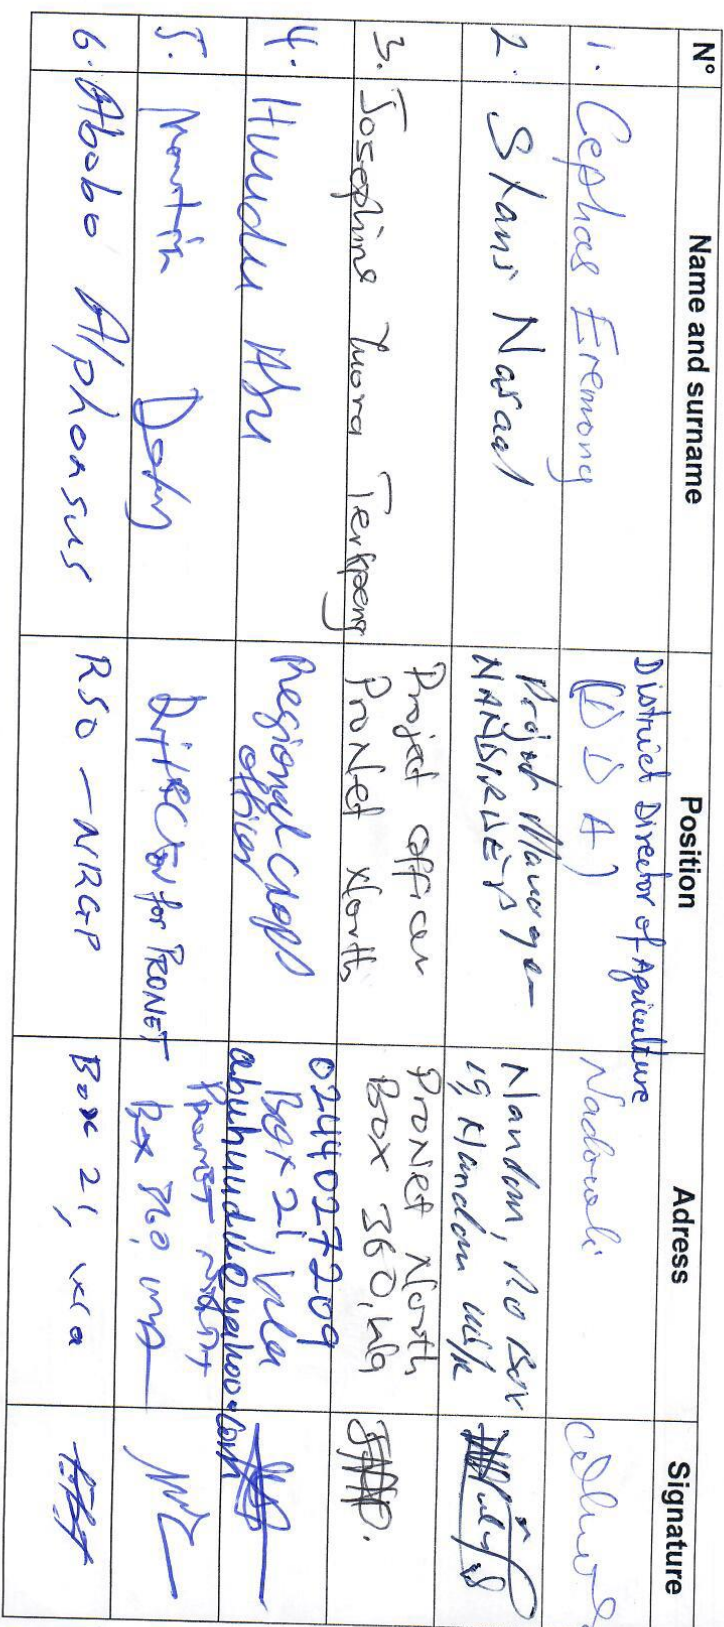 N° Name and surname Position Adress Signature
1. Cephas Eremong District Director of Agriculture
(D D A) Nadowli
2. Stanis Naraal Project Manager
Nandom, P.O Box
19, Nandom
3. Josephine Terkpeng Project officer
ProNet North
ProNet North
Box 360, Wa
4. Huudu Abu Regional Crops
officer
0244027209
Box 21, Wa
abuhuudu@yahoo.com
5. Martin Dery Director for PRONET
Box 360, Wa
6. Abobo Alphonsus RSO - NRGP Box 21, Wa